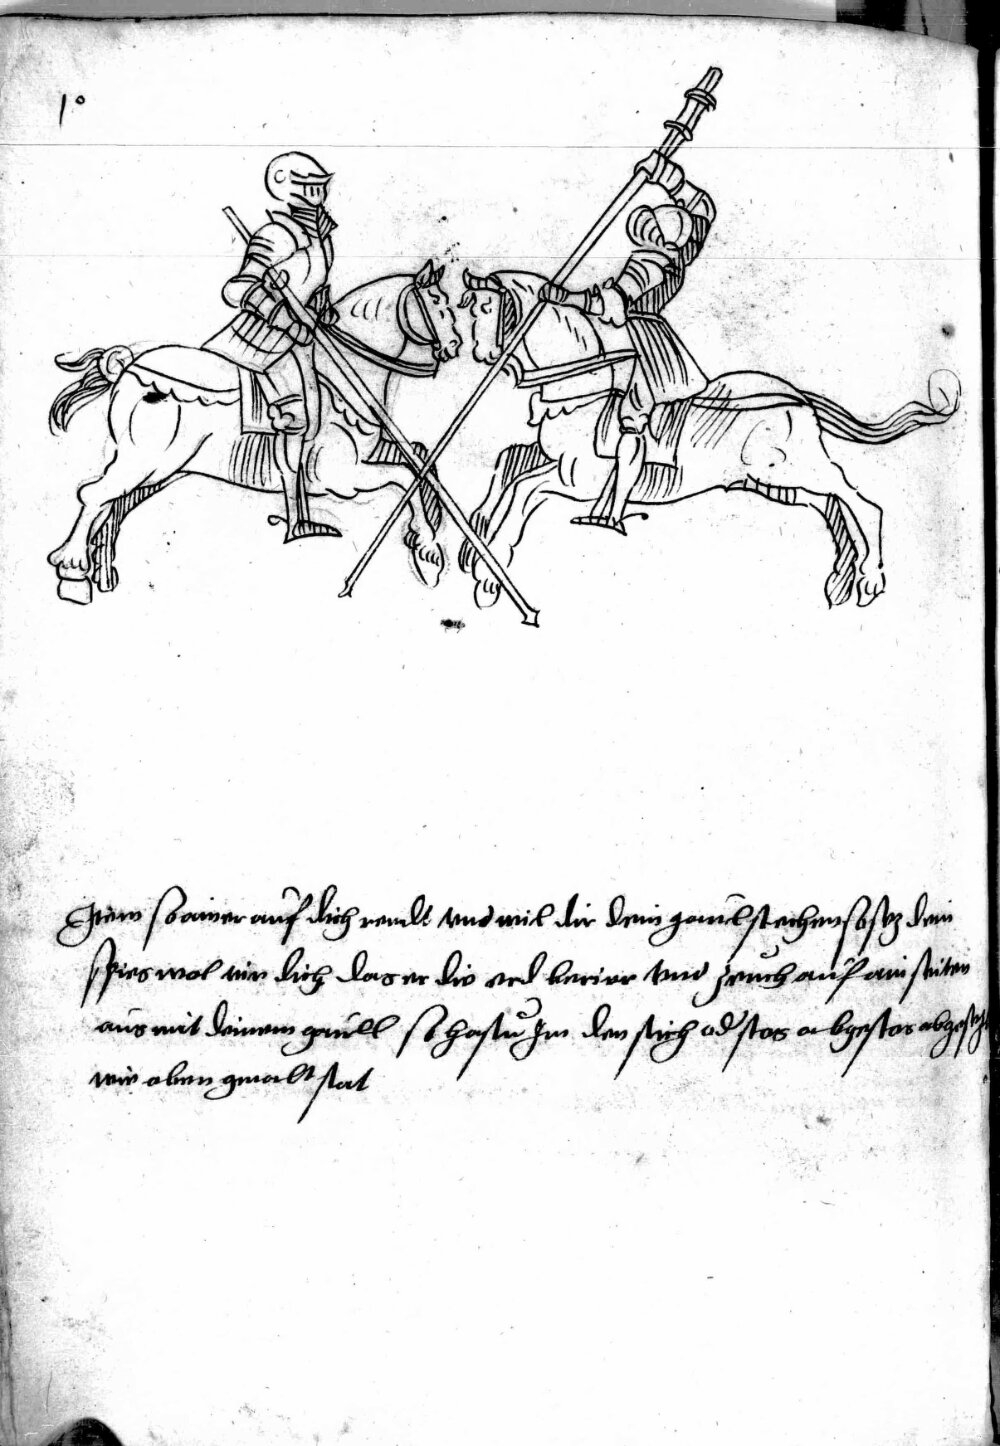 10
Item so ainer auf dich rendt vnd wil dir dein gaull stechen so setz dein
spies wol vir dich das er die erd berier vnd zeuch auf ain seiten
aus mit deinem gaull so hastu Im den stich od stos abgestos abgesetzt
wie oben gmalt stat